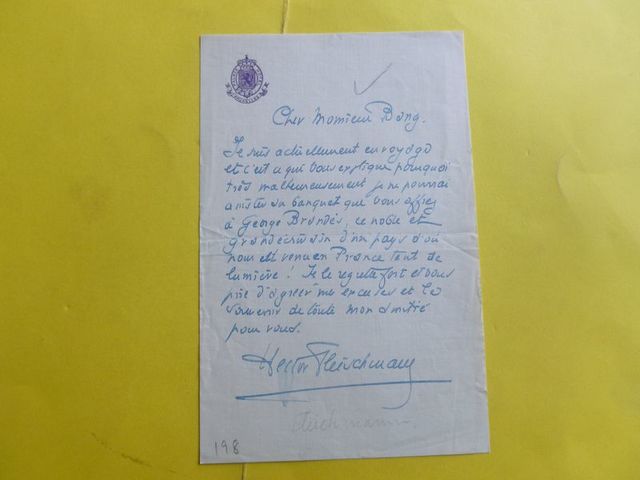 Cher Monsieur Bang.
Je suis actuellement en voyage
et c'est ce qui vous explique pourquoi
très malheureusement je ne pourrai
assister au banquet que vous offrez
à George Brandès, ce noble et
grand écrivain d'un pays d'où
nous est venu en France tant de
lumière ! Je le regrette fort et vous
prie d'agréer mes excuses et le
souvenir de toute mon amitié
pour vous.
Hector Fleischmann
Fleischmann.
198